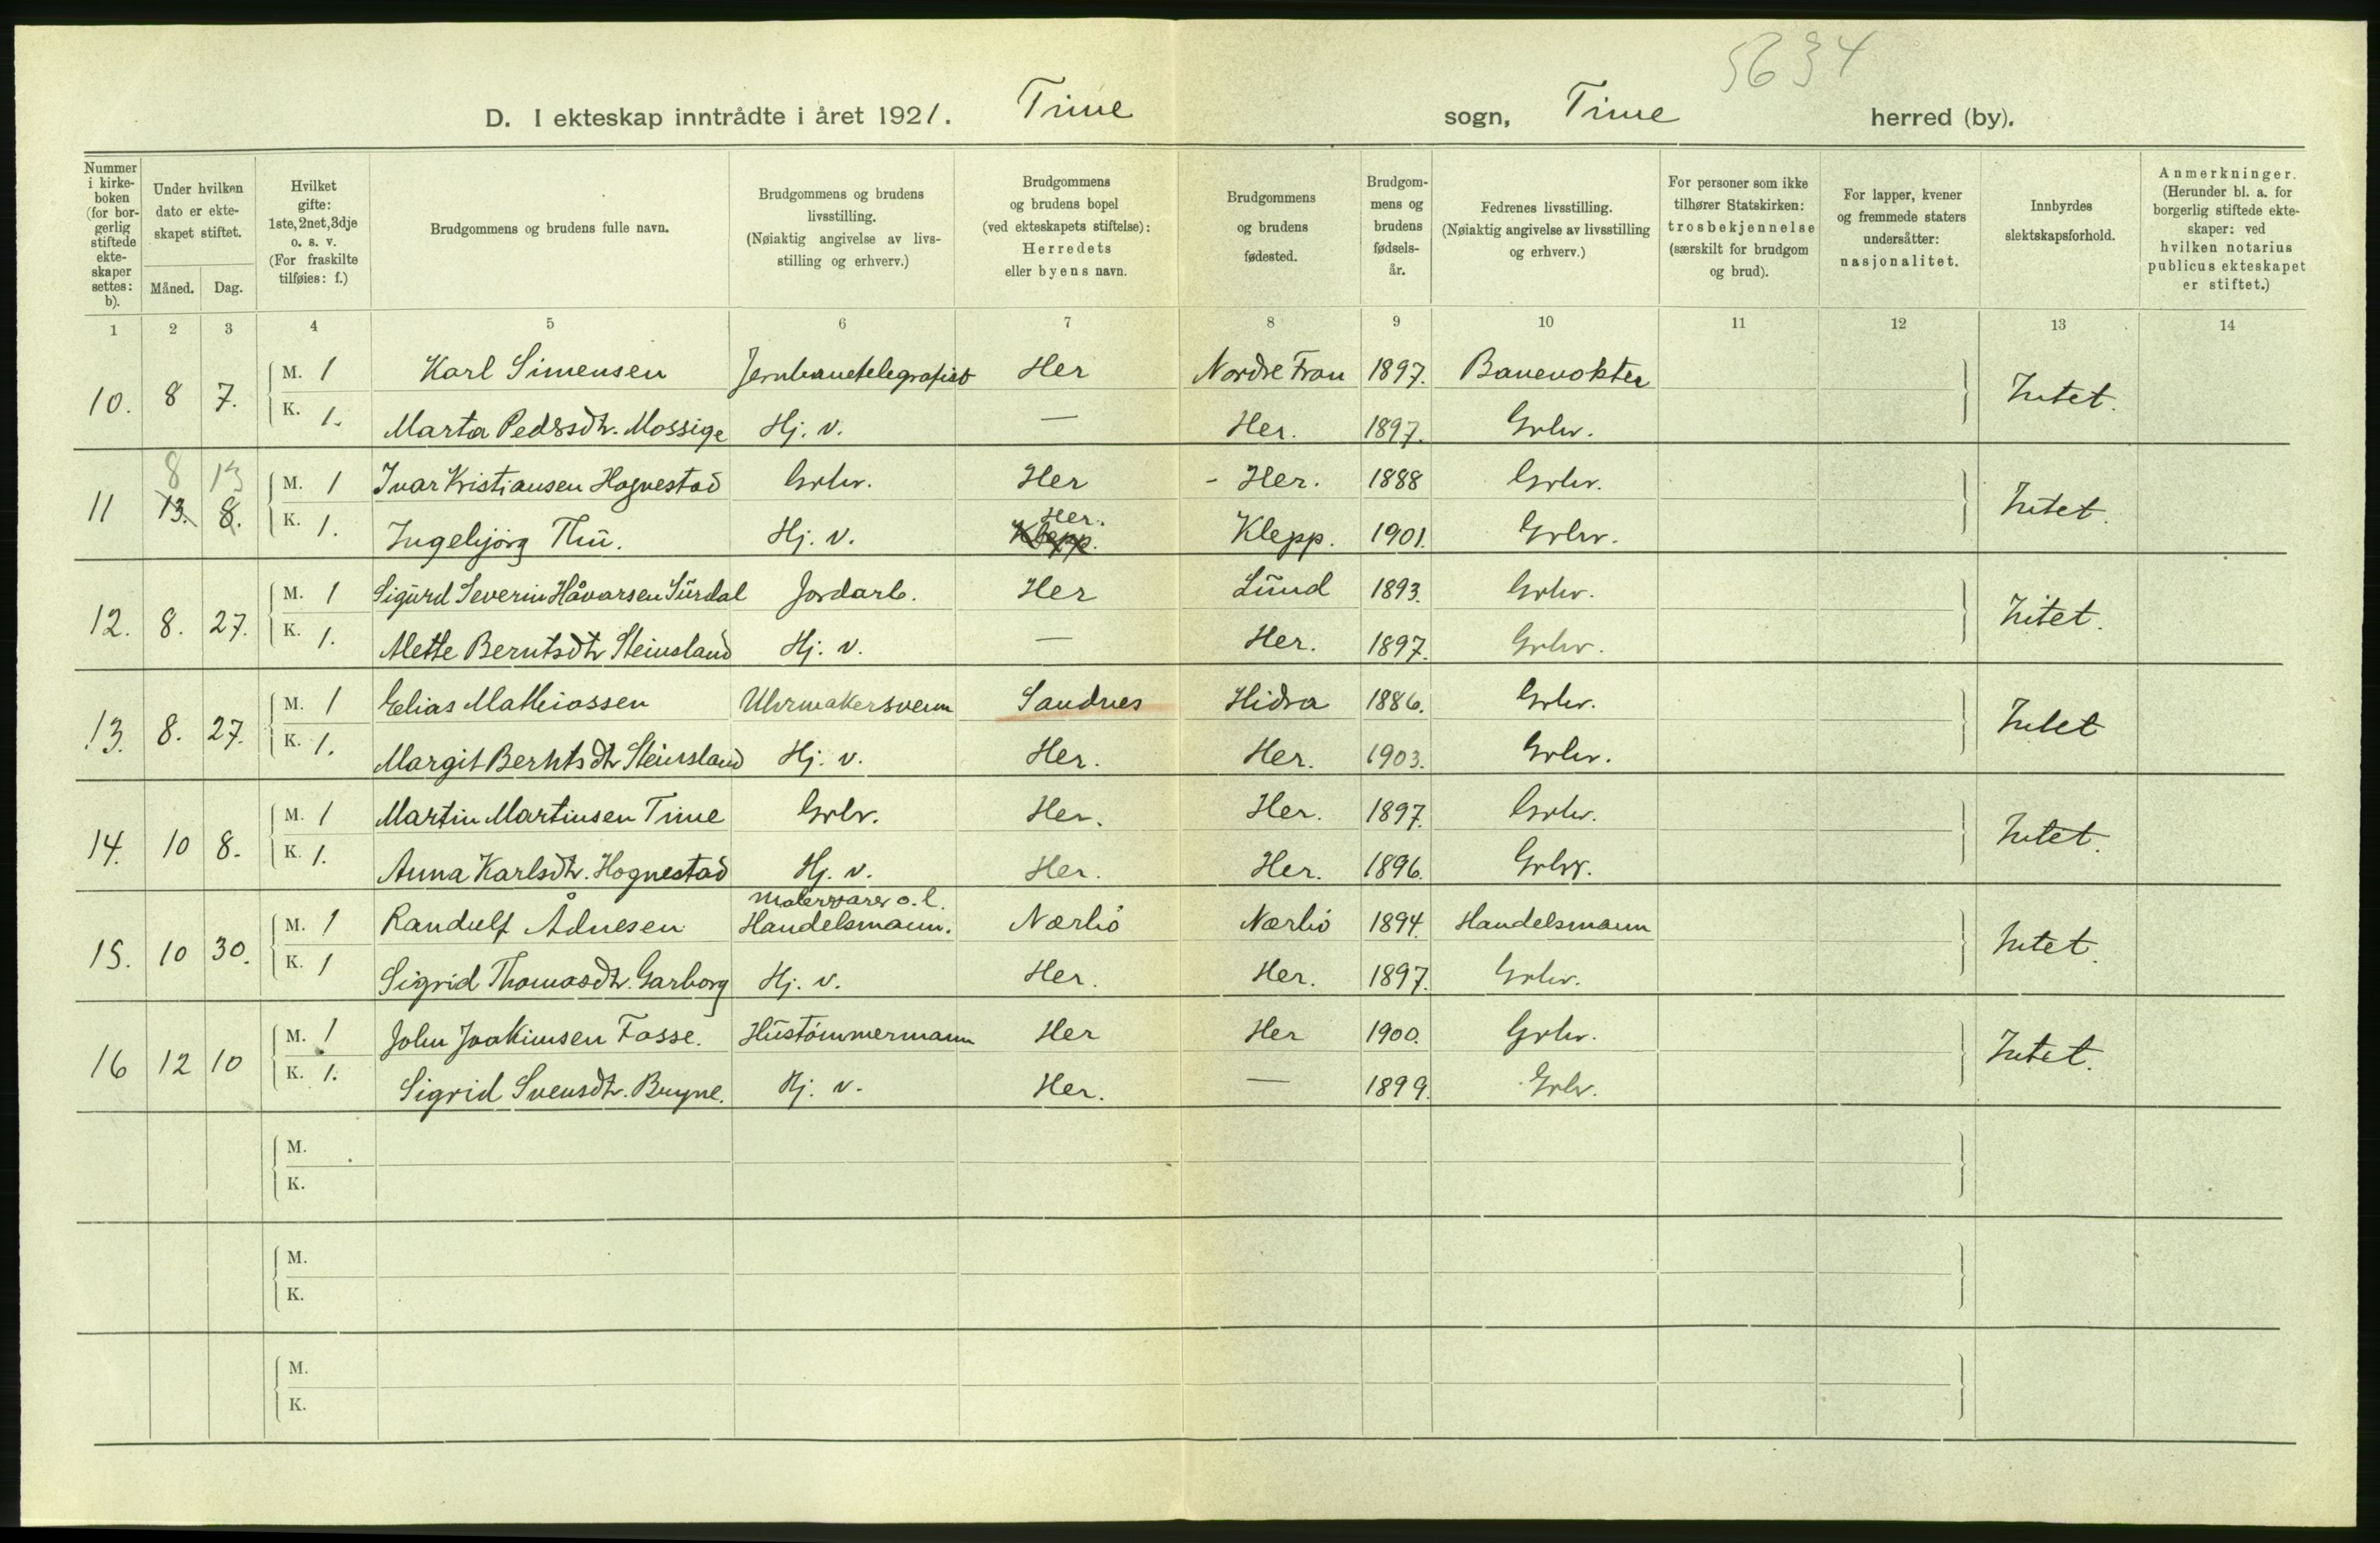 5634
D. I ekteskap inntrådte i året 1921. Time sogn, Time herred (by).
Nummer i kirke-boken (for bor-gerlig stiftede ekte-skaper settes: b).
Under hvilken dato er ekte-skapet stiftet.
Måned. Dag.
Hvilket gifte: 1ste, 2net, 3dje o. s. v. (For fraskilte tilføies: f.)
Brudgommens og brudens fulle navn.
Brudgommens og brudens livsstilling. (Nøiaktig angivelse av livs-stilling og erhverv.)
Brudgommens og brudens bopel (ved ekteskapets stiftelse): Herredets eller byens navn.
Brudgommens og brudens fødested.
Brudgom-mens og brudens fødsels-år.
Fedrenes livsstilling. (Nøiaktig angivelse av livsstilling og erhverv.)
For personer som ikke tilhører Statskirken: trosbekjennelse (særskilt for brudgom og brud).
For lapper, kvener og fremmede staters undersåtter: nasjonalitet.
Innbyrdes slektskapsforhold.
Anmerkninger. (Herunder bl. a. for borgerlig stiftede ekte-skaper: ved hvilken notarius publicus ekteskapet er stiftet.)
1 2 3 4 5 6 7 8 9 10 11 12 13 14
10. 8 7. M. 1 Karl Simensen Jernbanetelegrafist Her Nordre Fron 1897. Banevokter Intet.
K. 1. Marta Pedersdtr. Mossige Hj. v. — Her. 1897. Grbr.
8 13
11 13. 8. M. 1 Ivar Kristiansen Hognestad Grbr. Her - Her. 1888 Grbr. Intet.
Her.
K. 1. Ingebjørg Thu. Hj. v. Klepp. Klepp. 1901. Grbr.
12. 8. 27. M. 1 Sigurd Severin Håvarsen Surdal Jordarb. Her Lund 1893. Grbr. Intet.
K. 1. Mette Berntsdtr Steinsland Hj. v. — Her. 1897. Grbr.
13. 8. 27. M. 1 Elias Mathiassen Uhrmakersvenn Sandnes Hidra 1886. Grbr. Intet
K. 1. Margit Berntsdtr Steinsland Hj. v. Her. Her. 1903. Grbr.
14. 10 8. M. 1 Martin Martinsen Time Grbr. Her. Her. 1897. Grbr. Intet.
K. 1. Anna Karlsdtr. Hognestad Hj. v. Her. Her. 1896. Grbr.
Malervarer o.l.
15. 10 30. M. 1 Randulf Ådnesen Handelsmann. Nærbø Nærbø 1894. Handelsmann Intet.
K. 1 Sigrid Thomasdtr. Garborg Hj. v. Her. Her. 1897. Grbr.
16 12 10 M. 1 John Joakimsen Fosse. Hustømmermann Her Her 1900. Grbr. Intet.
K. 1. Sigrid Svensdtr. Bryne. Hj. v. Her. — 1899. Grbr.
M.
K.
M.
K.
M.
K.